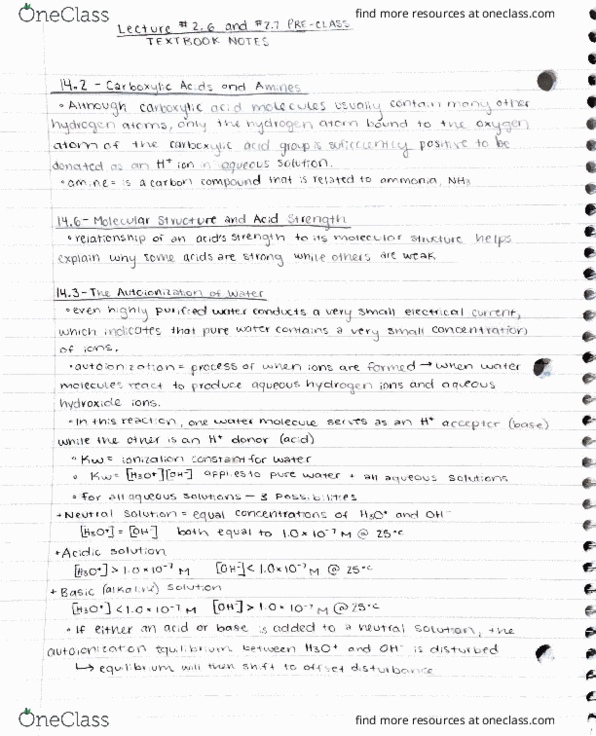 OneClass
find more resources at oneclass.com
Lecture #2.6 and #2.7 PRE-CLASS
TEXTBOOK NOTES
14.2 - Carboxylic Acids and Amines
• Although carboxylic acid molecules usually contain many other
hydrogen atoms, only the hydrogen atom bound to the oxygen
atom of the carboxylic acid group is sufficently positive to be
donated as an H⁺ ion in aqueous solution.
• amine = is a carbon compound that is related to ammonia, NH₃
14.6 - Molecular Structure and Acid Strength
• relationship of an acid's strength to its molecular structure helps
explain why some acids are strong while others are weak
14.3 - The Autoionization of Water
• even highly purified water conducts a very small electrical current,
which indicates that pure water contains a very small concentration
of ions.
• autoionization = process of when ions are formed → when water
molecules react to produce aqueous hydrogen ions and aqueous
hydroxide ions.
• In this reaction, one water molecule serves as an H⁺ acceptor (base)
while the other is an H⁺ donor (acid)
• Kw = ionization constant for water
• Kw = [H₃O⁺][OH⁻] applies to pure water + all aqueous solutions
• for all aqueous solutions - 3 possibilities
+ Neutral solution = equal concentrations of H₃O⁺ and OH⁻
[H₃O⁺] = [OH⁻] both equal to 1.0 × 10⁻⁷ M @ 25°C
+ Acidic solution
[H₃O⁺] > 1.0 × 10⁻⁷ M [OH⁻] < 1.0 × 10⁻⁷ M @ 25°C
+ Basic (alkaline) solution
[H₃O⁺] < 1.0 × 10⁻⁷ M [OH⁻] > 1.0 × 10⁻⁷ M @ 25°C
• If either an acid or base is added to a neutral solution, the
autoionization equilibrium between H₃O⁺ and OH⁻ is disturbed
↳ equilibrium will then shift to offset disturbance
OneClass
find more resources at oneclass.com